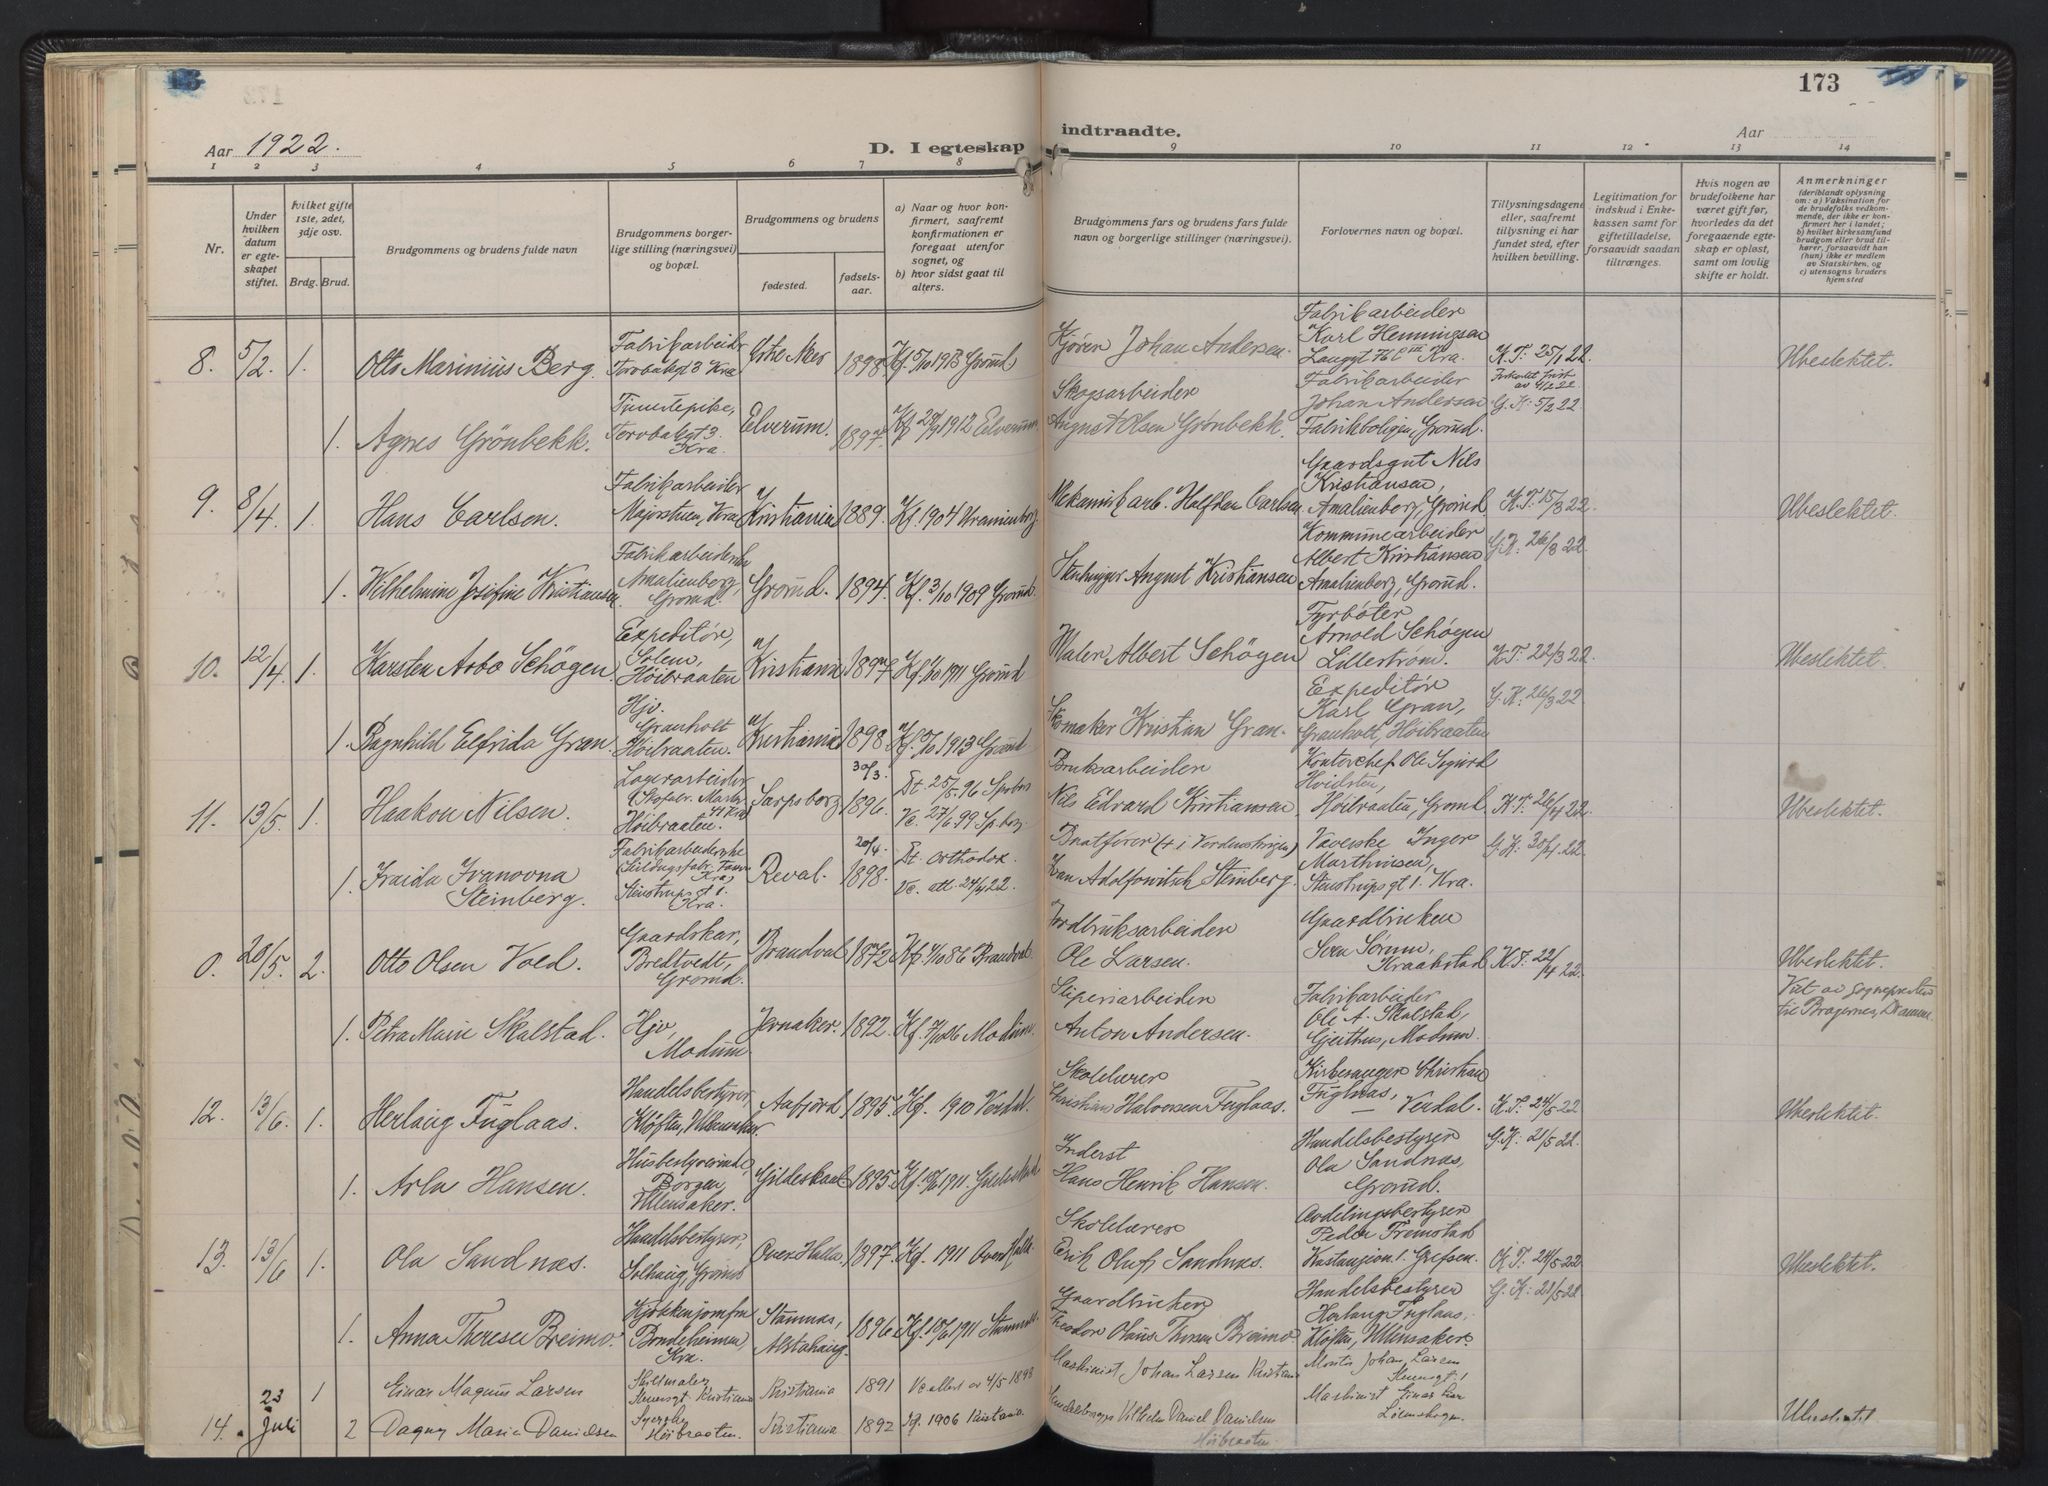 173
Aar 1922.
D. I egteskap indtraadte.
Aar
1 2 3 4 5 6 7 8 9 10 11 12 13 14
Nr.
Under hvilken datum er egteskapet stiftet.
Hvilket gifte 1ste, 2det, 3dje osv.
Brdg. Brud.
Brudgommens og brudens fulde navn
Brudgommens borgerlige stilling (næringsvei) og bopæl.
Brudgommens og brudens
fødested.
fødselsaar.
a) Naar og hvor konfirmert, saafremt konfirmationen er foregaat utenfor sognet, og
b) hvor sidst gaat til alters.
Brudgommens fars og brudens fars fulde navn og borgerlige stillinger (næringsvei).
Forlovernes navn og bopæl.
Tillysningsdagene eller, saafremt tillysning ei har fundet sted, efter hvilken bevilling.
Legitimation for indskud i Enkekassen samt for giftetilladelse, forsaavidt saadan tiltrænges.
Hvis nogen av brudefolkene har været gift før, hvorledes da det foregaaende egteskap er opløst, samt om lovlig skifte er holdt.
Anmerkninger
(deriblandt oplysning om: a) Vaksination for de brudefolks vedkommende, der ikke er konfirmert her i landet; b) hvilket kirkesamfund brudgom eller brud tilhører, forsaavidt han (hun) ikke er medlem av Statskirken, og c) utensogns bruders hjemsted
8. 5/2. 1. Otto Marinius Berg. Fabrikarbeider Kra Østre Aker 1898 Kf. 5/10 1913 Grorud Kjører Johan Andersen. Fabrikarbeider Karl Henningsen Kra. K.T: 25/1 22. Ubeslektet.
1. Agnes Grønbekk. Tjenestepike, Kra. Elverum. 1897. Kf 29/9 1912 Elverum Skogsarbeider August Olsen Grønbekk. Fabrikarbeider Johan Andersen Fabrikboligen, Grorud. G.K: 5/2 22.
9. 8/4. 1. Hans Carlsen. Fabrikarbeider Majorstuen, Kra Kristiania 1889. Kf. 1904 Uranienborg. Mekanisk arb. Halfdan Carlsen Gaardsgut Nils Kristiansen, Amalienborg, Grorud. K.T: 15/3 22. Ubeslektet.
1. Wilhelmine Josefine Kristiansen. Fabrikarbeiderske Amalienborg, Grorud. Grorud. 1894. Kf. 3/10 1909 Grorud. Stenhugger August Kristiansen Kommunearbeider Albert Kristiansen Amalienborg, Grorud. G.K: 26/3 22.
10. 12/4. 1. Karsten Arbo Schøgen Expeditør, Solem, Høibraaten Kristiania 1897 Kf. 1/10 1911 Grorud Maler Albert Schøgen Fyrbøter Arnold Schøgen Lillestrøm. K.T: 22/3 22. Ubeslektet.
1. Ragnhild Elfrida Gran Hjv. Granholt Høibraaten. Kristiania 1898 Kf. 5/10 1913 Grorud Skomaker Kristian Gran. Expeditør Karl Gran, Granholt, Høibraaten G.K: 26/3 22.
11. 13/5. 1. Haakon Nilsen. Lagerarbeider Høibraaten. Sarpsborg 30/3. 1896. Dt. 25/5 96 Spsbrg Vc. 27/6 99 Sp.borg. Bruksarbeider Nils Edvard Kristiansen Kontorchef Ole Sigurd Hvidsten, Høibraaten, Grorud. K.T: 26/4 22. Ubeslektet.
1. Iraida Ivanovna Steinberg. Fabrikarbeiderske Stenstrupsgt 1. Kra. Reval. 20/4. 1898. Dt. orthodox. Vc. att. 24/4 22. Baatfører (+ i Verdenskrigen) Ivan Adolfowitsch Steinberg. Væverske Inger Marthinsen, Stenstrupsgt 1. Kra. G.K: 30/4 22.
0. 20/5. 2. Otto Olsen Vold. Gaardskar, Bredtvedt, Grorud. Brandval 1872 Kf. 1/10 86 Brandval. Jordbruksarbeider Ole Larsen. Gaardbruker Sven Sørum, Kraakstad K.T: 22/4 22. Ubeslektet.
Viet av sogneprésten til Bragernes, Dramm.
1. Petra Marie Skalstad. Hjv, Modum Jevnaker. 1892. Modum. Sliperiarbeider Anton Andersen. Fabrikarbeider Ole A. Skalstad, Gjeithus, Modum.
12. 13/6. 1. Herlaug Fuglaas. Handelsbestyrer, Kløften, Ullensaker. Aafjord 1895. Kf. 1910 Verdal. Skolelærer Christian Halvorsen Fuglaas. Kirkesanger Christian Fuglaas, — Verdal. K.T: 24/5 22 Ubeslektet.
1. Arla Hansen. Husbestyrerinde, Borgen, Ullensaker. Gildeskaal 1895. Kf. 1911. Gildeskaal Inderst Hans Henrik Hansen. Handelsbestyrer Ola Sandnæs, Grorud. G.K: 21/5 22.
13. 13/6 1. Ola Sandnæs. Handelsbestyrer, Solhaug, Grorud Overhalla. 1897. Kf. 1911 Overhalla. Skolelærer Erik Oluf Sandnæs. Avdelingsbestyrer Peder Fremstad Grefsen. K.T: 24/5 22 Ubeslektet.
1. Anna Theresie Breimo. Kjøkkenjomfru Bondeheimen Kra. Stamnes, Alstahaug. 1896 Kf. 1911 Gaardbruker Theodor Olaus Thorsen Breimo Handelsbestyrer Herlaug Fuglaas, Kløften, Ullensaker. G.K: 21/5 22
14. 23 Juli 1 Einar Magnus Larsen Skiltmaler Kristiania Kristiania 1891 Vc attest av 4/5 1898 Maskinist Johan Larsen Kristiania Johan Larsen Ubeslektet
2 Dagny Marie Danielsen Syerske Høibraaten. Kristiania 1892 Kf. 1906 Kristiania. Vilhelm Daniel Danielsen Høibraaten. Maskinist Einar